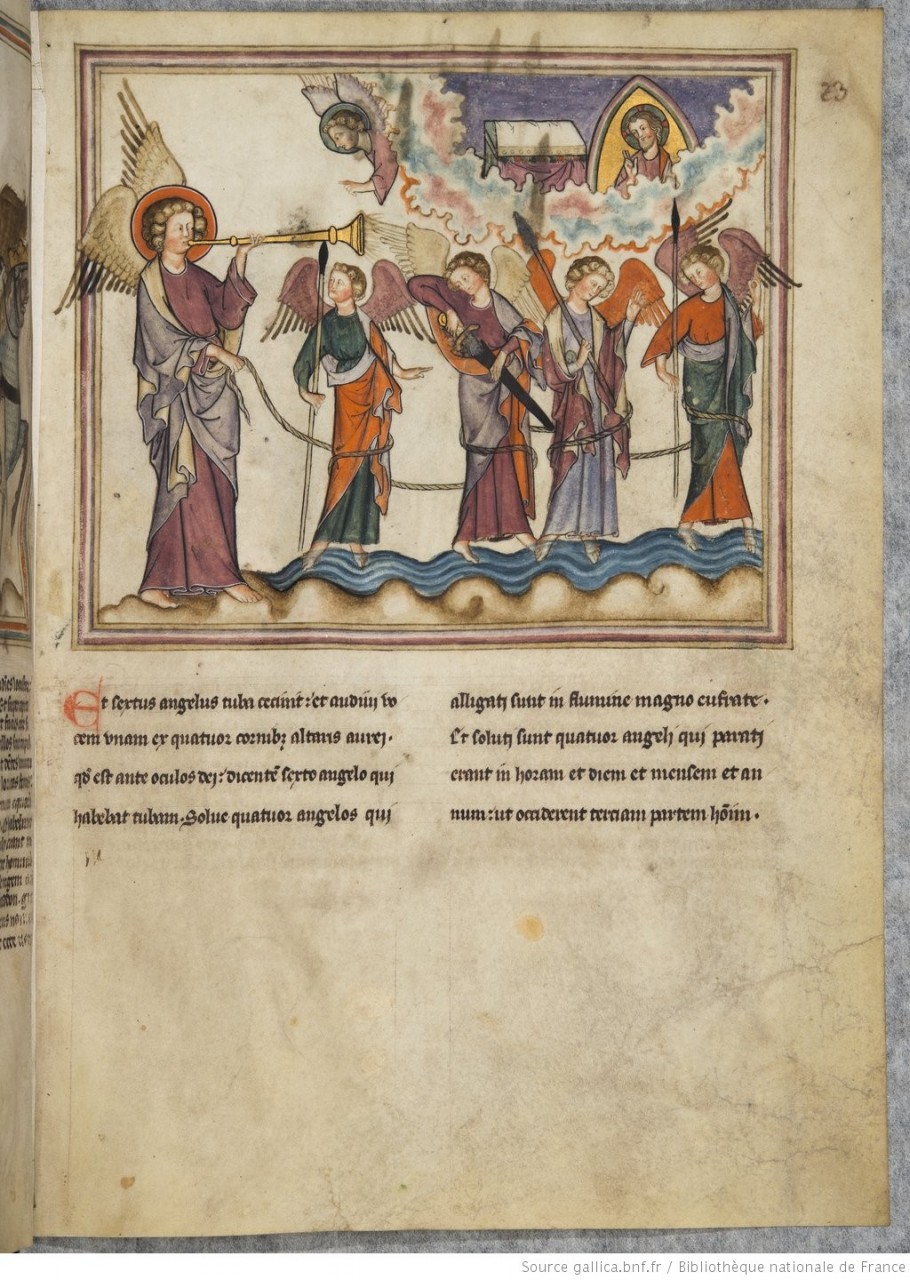 23
Et sextus angelus tuba cecinit: et audiui vo
cem vnam ex quatuor cornibꝫ altaris aurei.
qd̄ est ante oculos dei: dicentē sexto angelo qui
habebat tubam. Solue quatuor angelos qui
alligati sunt in flumine magno eufrate.
Et soluti sunt quatuor angeli qui parati
erant in horam et diem et mensem et an
num: ut occiderent terciam partem hōīm.
Source gallica.bnf.fr / Bibliothèque nationale de France